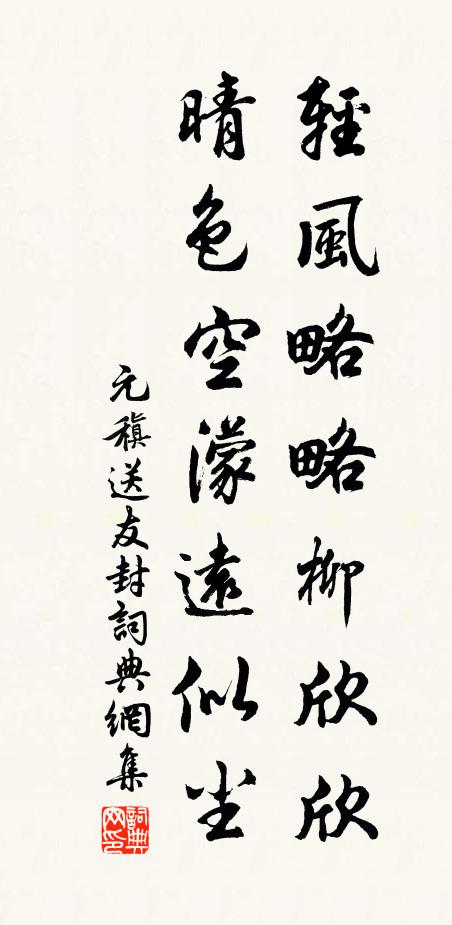 輕風略略柳欣欣
晴色空濛遠似尘
元稹送友封詞典網集
詞典网印